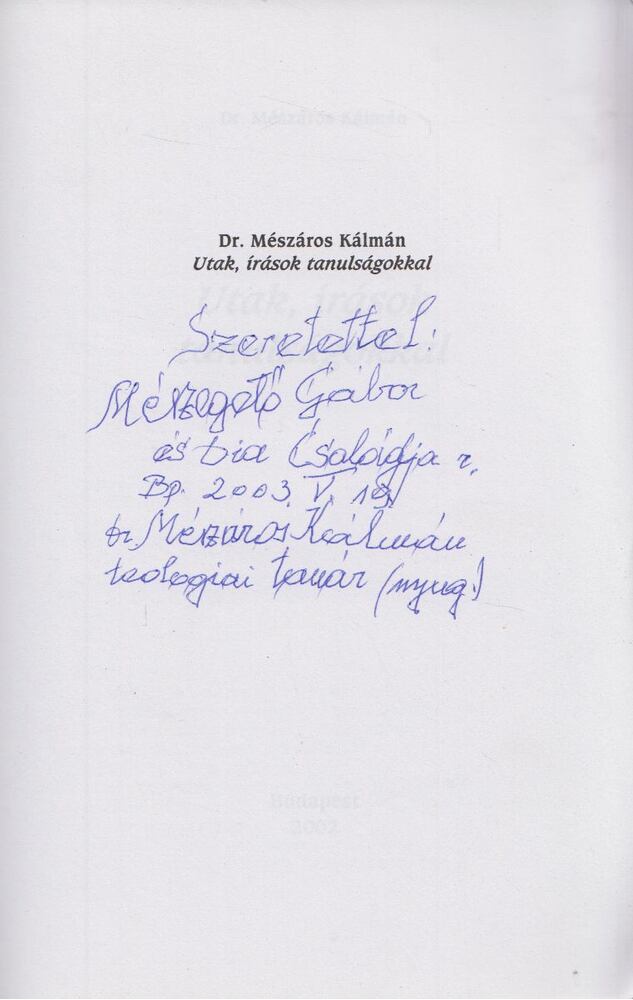 Dr. Mészáros Kálmán
Utak, írások tanulságokkal
Szeretettel:
Mészegető Gábor
és Dia Családja r.
Bp. 2003. V. 19.
dr. Mészáros Kálmán
teologiai tanár (nyug.)
Budapest
2002